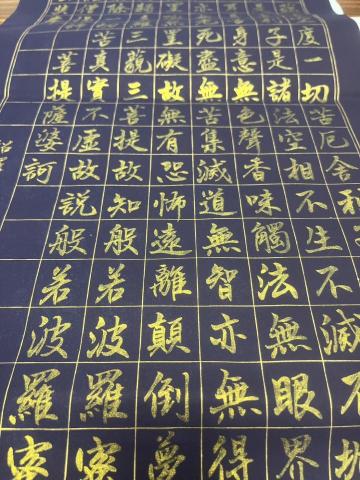 度一切苦厄舍利
子是諸法空相不生不滅不垢
身意無色聲香味觸法無眼界
死盡無苦集滅道無智亦無得
罣礙故無有恐怖遠離顛倒夢
三藐三菩提故知般若波羅蜜
苦真實不虛故說般若波羅蜜
菩提薩婆訶